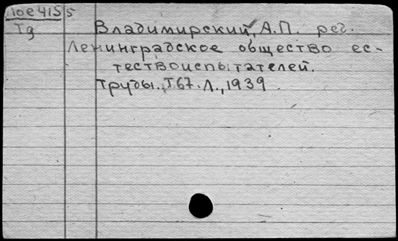 10e415s
Тд Владимирский, А.П. рег.
Ленинградское общество ес-
тествоиспытателей.
Труды., Т67. Л., 1939